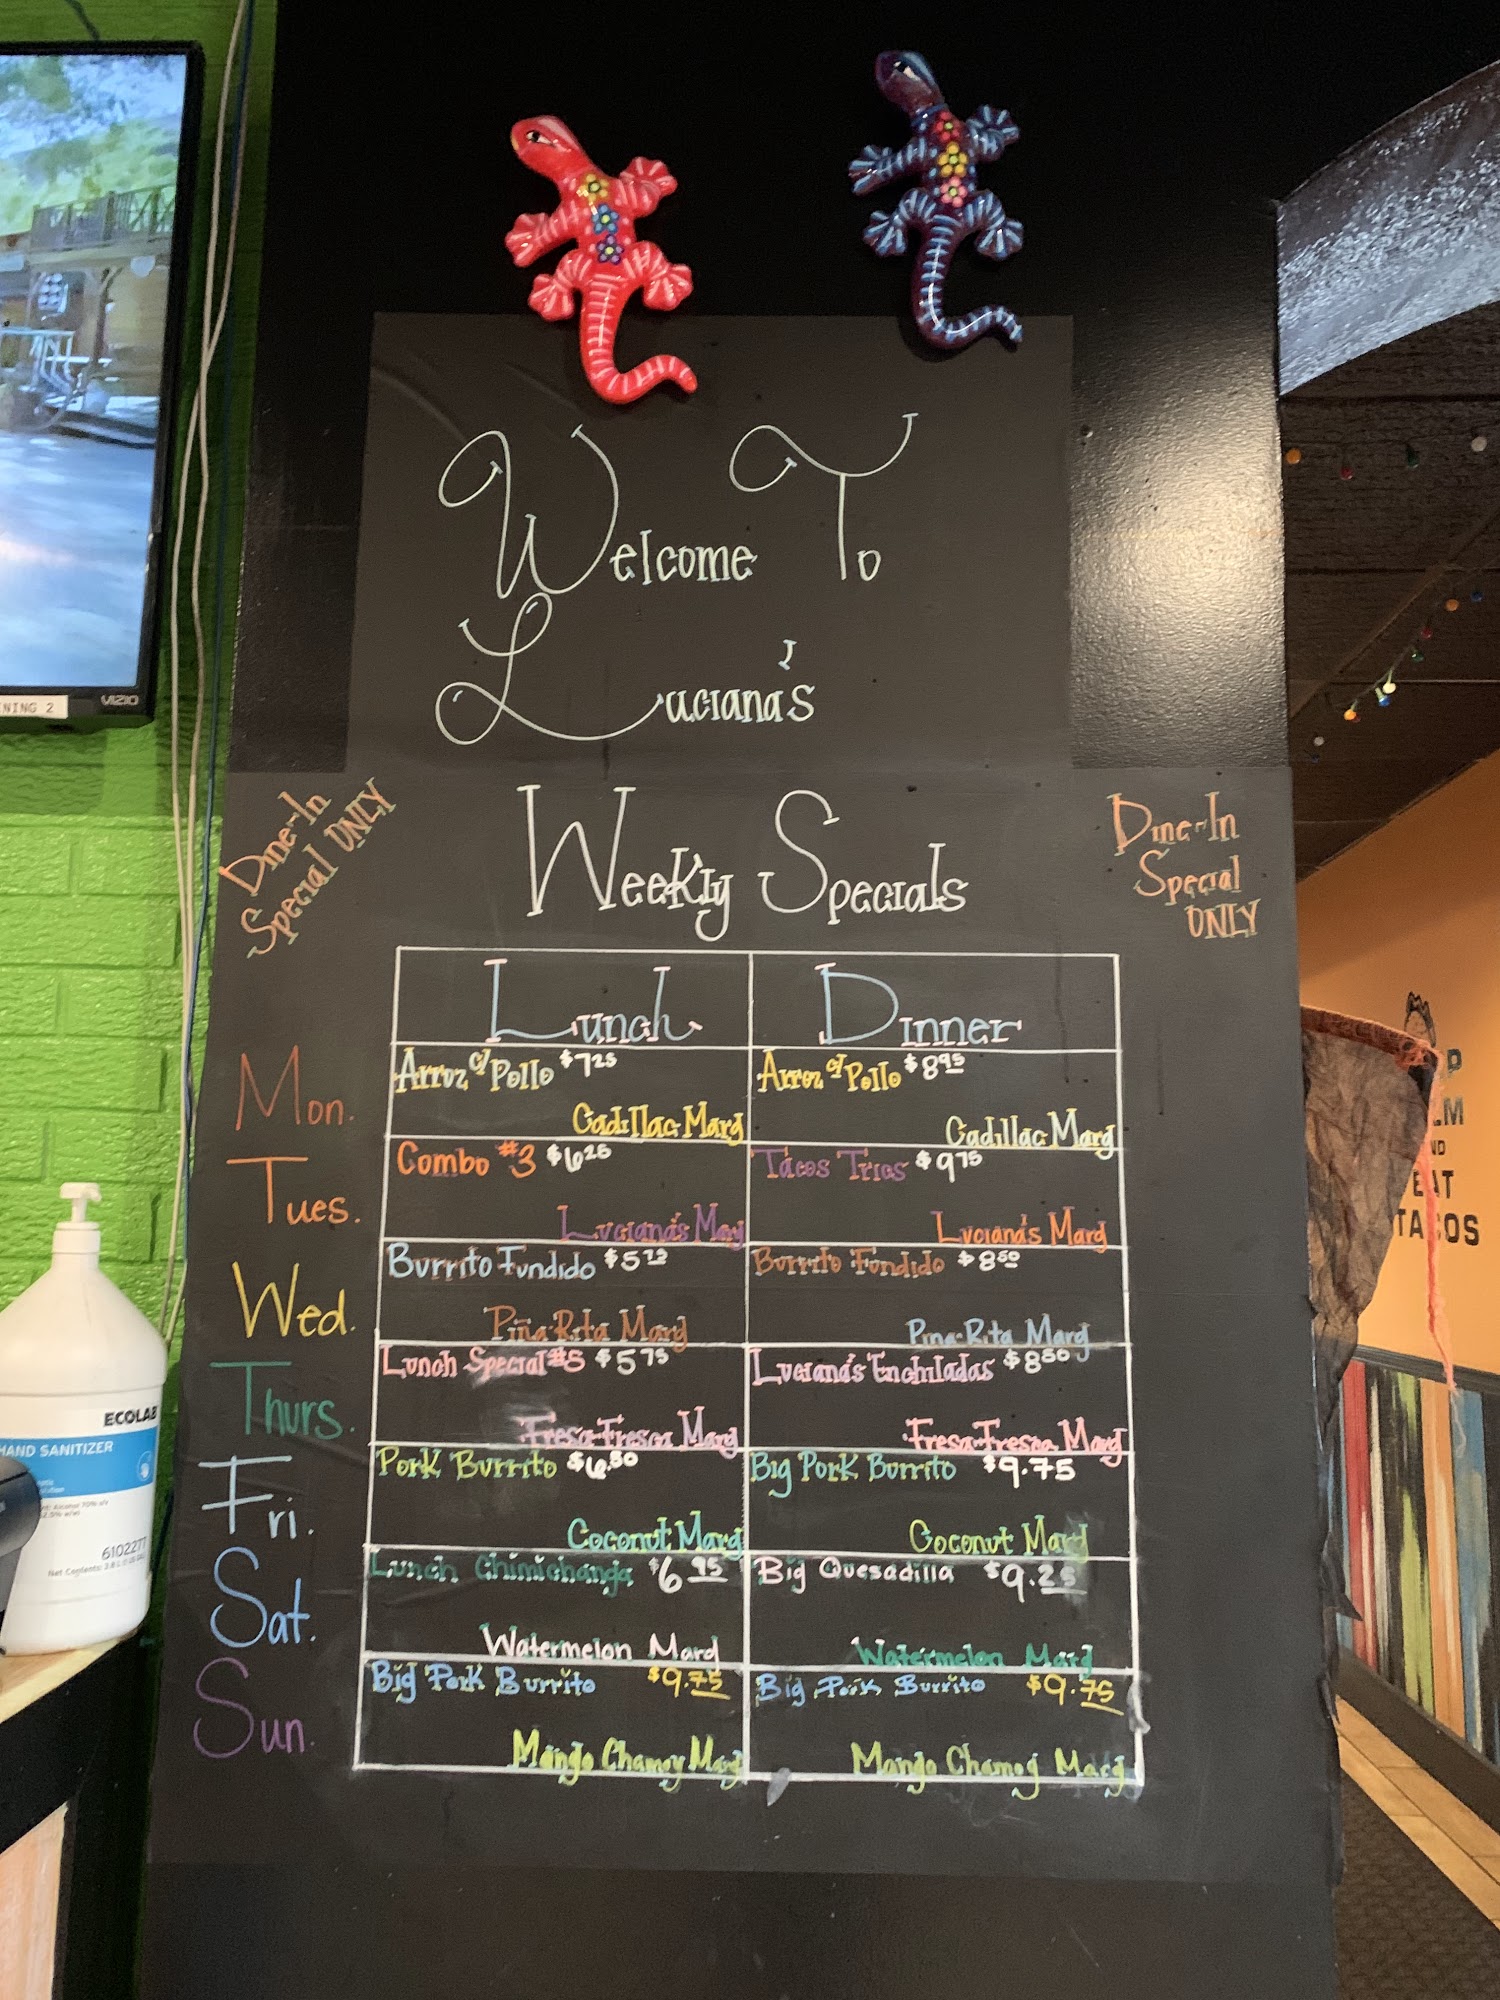 Welcome To
Luciana's
Dine-In
Special ONLY
Weekly Specials
Dine-In
Special
ONLY
Lunch Dinner
Mon.
Arroz c/ Pollo $7.25
Cadillac Marg
Arroz c/ Pollo $8.95
Cadillac Marg
Tues.
Combo #3 $6.25
Luciana's Marg
Tacos Trios $9.75
Luciana's Marg
Wed.
Burrito Fundido $5.75
Piña-Rita Marg
Burrito Fundido $8.50
Pina-Rita Marg
Thurs.
Lunch Special #5 $5.75
Fresa-Fresca Marg
Luciana's Enchiladas $8.50
Fresa-Fresca Marg
Fri.
Pork Burrito $6.50
Coconut Marg
Big Pork Burrito $9.75
Coconut Marg
Sat.
Lunch Chimichanga $6.95
Watermelon Marg
Big Quesadilla $9.25
Watermelon Marg
Sun.
Big Pork Burrito $9.75
Mango Chamoy Marg
Big Pork Burrito $9.75
Mango Chamoy Marg
NING 2
VIZIO
ECOLAB
HAND SANITIZER
6102277
EAT
TACOS